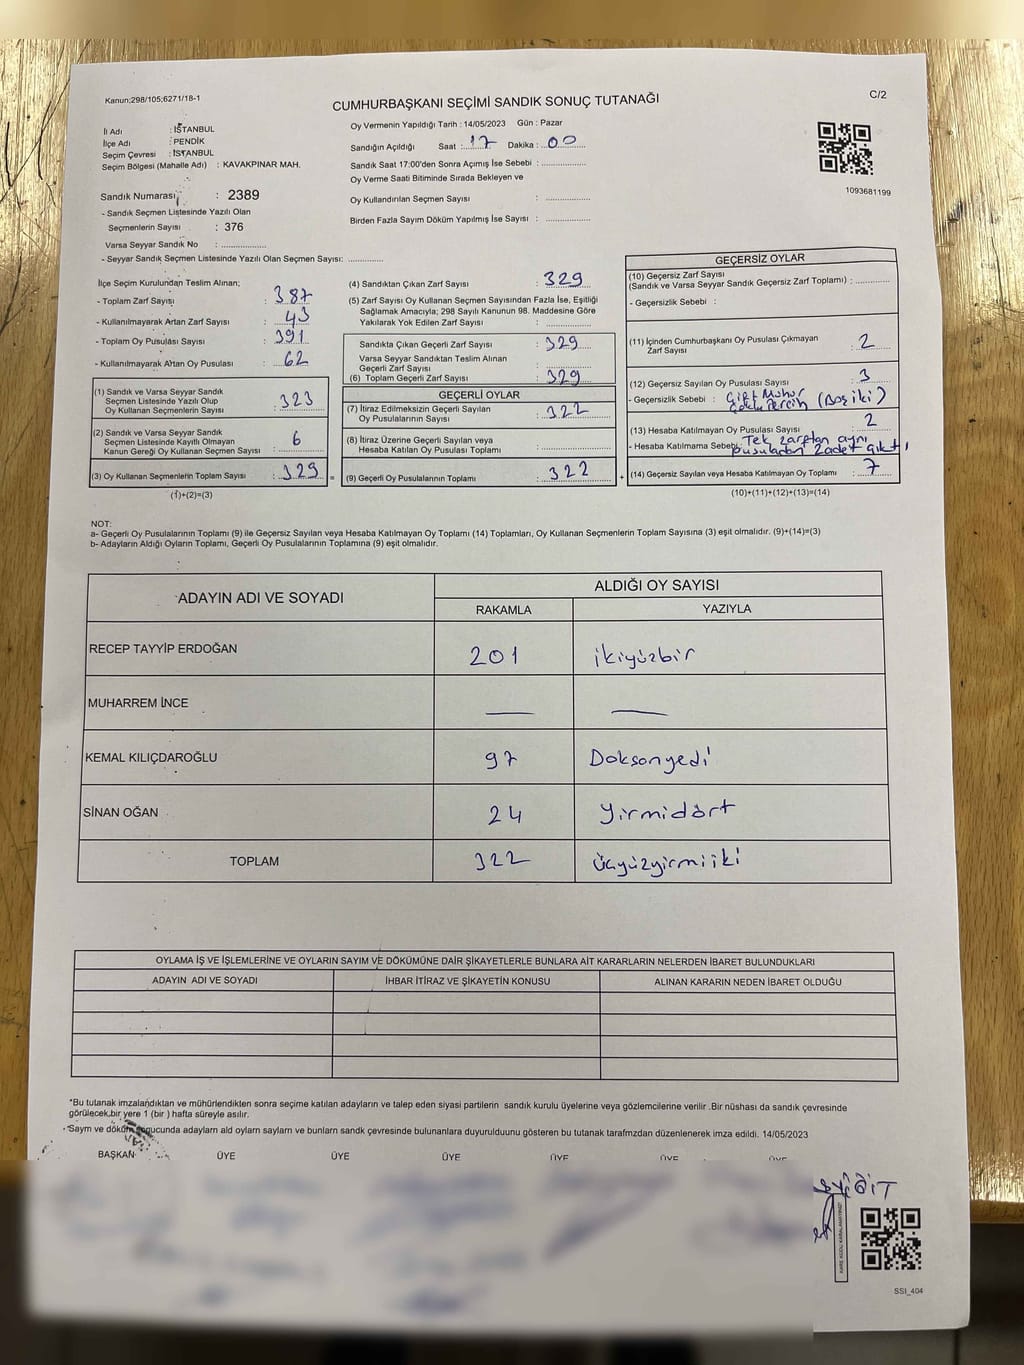 Kanun:298/105;6271/18-1
CUMHURBAŞKANI SEÇİMİ SANDIK SONUÇ TUTANAĞI
C/2
İl Adı : İSTANBUL
İlçe Adı : PENDİK
Seçim Çevresi : İSTANBUL
Seçim Bölgesi (Mahalle Adı) : KAVAKPINAR MAH.
Sandık Numarası : 2389
- Sandık Seçmen Listesinde Yazılı Olan
Seçmenlerin Sayısı : 376
Varsa Seyyar Sandık No : ..................
- Seyyar Sandık Seçmen Listesinde Yazılı Olan Seçmen Sayısı: ..............
Oy Vermenin Yapıldığı Tarih : 14/05/2023 Gün : Pazar
Sandığın Açıldığı Saat : 17 Dakika : 00
Sandık Saat 17:00'den Sonra Açımış İse Sebebi : ..................
Oy Verme Saati Bitiminde Sırada Bekleyen ve
Oy Kullandırılan Seçmen Sayısı : ..................
Birden Fazla Sayım Döküm Yapılmış İse Sayısı : ..................
1093681199
İlçe Seçim Kurulundan Teslim Alınan;
- Toplam Zarf Sayısı : 387
- Kullanılmayarak Artan Zarf Sayısı : 43
- Toplam Oy Pusulası Sayısı : 391
- Kullanılmayarak Artan Oy Pusulası : 62
(1) Sandık ve Varsa Seyyar Sandık
Seçmen Listesinde Yazılı Olup
Oy Kullanan Seçmenlerin Sayısı : 323
(2) Sandık ve Varsa Seyyar Sandık
Seçmen Listesinde Kayıtlı Olmayan
Kanun Gereği Oy Kullanan Seçmen Sayısı : 6
(3) Oy Kullanan Seçmenlerin Toplam Sayısı : 329
(1)+(2)=(3)
(4) Sandıktan Çıkan Zarf Sayısı : 329
(5) Zarf Sayısı Oy Kullanan Seçmen Sayısından Fazla İse, Eşitliği
Sağlamak Amacıyla; 298 Sayılı Kanunun 98. Maddesine Göre
Yakılarak Yok Edilen Zarf Sayısı : ..................
Sandıkta Çıkan Geçerli Zarf Sayısı : 329
Varsa Seyyar Sandıktan Teslim Alınan
Geçerli Zarf Sayısı : ..................
(6) Toplam Geçerli Zarf Sayısı : 329
GEÇERLİ OYLAR
(7) İtiraz Edilmeksizin Geçerli Sayılan
Oy Pusulasının Sayısı : 322
(8) İtiraz Üzerine Geçerli Sayılan veya
Hesaba Katılan Oy Pusulası Toplamı : ..................
(9) Geçerli Oy Pusulalarının Toplamı : 322
GEÇERSİZ OYLAR
(10) Geçersiz Zarf Sayısı
(Sandık ve Varsa Seyyar Sandık Geçersiz Zarf Toplamı) : ..............
- Geçersizlik Sebebi :
(11) İçinden Cumhurbaşkanı Oy Pusulası Çıkmayan
Zarf Sayısı : 2
(12) Geçersiz Sayılan Oy Pusulası Sayısı : 3
- Geçersizlik Sebebi : Çift Mühür
(Boş iki)
(13) Hesaba Katılmayan Oy Pusulası Sayısı : 2
- Hesaba Katılmama Sebebi: Tek zarftan aynı
pusuladan 2 adet çıktı
(14) Geçersiz Sayılan veya Hesaba Katılmayan Oy Toplamı : 7
(10)+(11)+(12)+(13)=(14)
NOT:
a- Geçerli Oy Pusulalarının Toplamı (9) ile Geçersiz Sayılan veya Hesaba Katılmayan Oy Toplamı (14) Toplamları, Oy Kullanan Seçmenlerin Toplam Sayısına (3) eşit olmalıdır. (9)+(14)=(3)
b- Adayların Aldığı Oyların Toplamı, Geçerli Oy Pusulalarının Toplamına (9) eşit olmalıdır.
ADAYIN ADI VE SOYADI ALDIĞI OY SAYISI
RAKAMLA YAZIYLA
RECEP TAYYİP ERDOĞAN 201 ikiyüzbir
MUHARREM İNCE — —
KEMAL KILIÇDAROĞLU 97 Doksanyedi
SİNAN OĞAN 24 Yirmidört
TOPLAM 322 üçyüzyirmiiki
OYLAMA İŞ VE İŞLEMLERİNE VE OYLARIN SAYIM VE DÖKÜMÜNE DAİR ŞİKAYETLERLE BUNLARA AİT KARARLARIN NELERDEN İBARET BULUNDUKLARI
ADAYIN ADI VE SOYADI İHBAR İTİRAZ VE ŞİKAYETİN KONUSU ALINAN KARARIN NEDEN İBARET OLDUĞU
*Bu tutanak imzalandıktan ve mühürlendikten sonra seçime katılan adayların ve talep eden siyasi partilerin sandık kurulu üyelerine veya gözlemcilerine verilir .Bir nüshası da sandık çevresinde
görülecek,bir yere 1 (bir ) hafta süreyle asılır.
Saym ve döküm sonucunda adaylam ald oylarn saylarn ve bunlarn sandk çevresinde bulunanlara duyurulduunu gösteren bu tutanak tarafmzdan düzenlenerek imza edildi. 14/05/2023
BAŞKAN ÜYE ÜYE ÜYE ÜYE ÜYE ÜYE
SSI_404